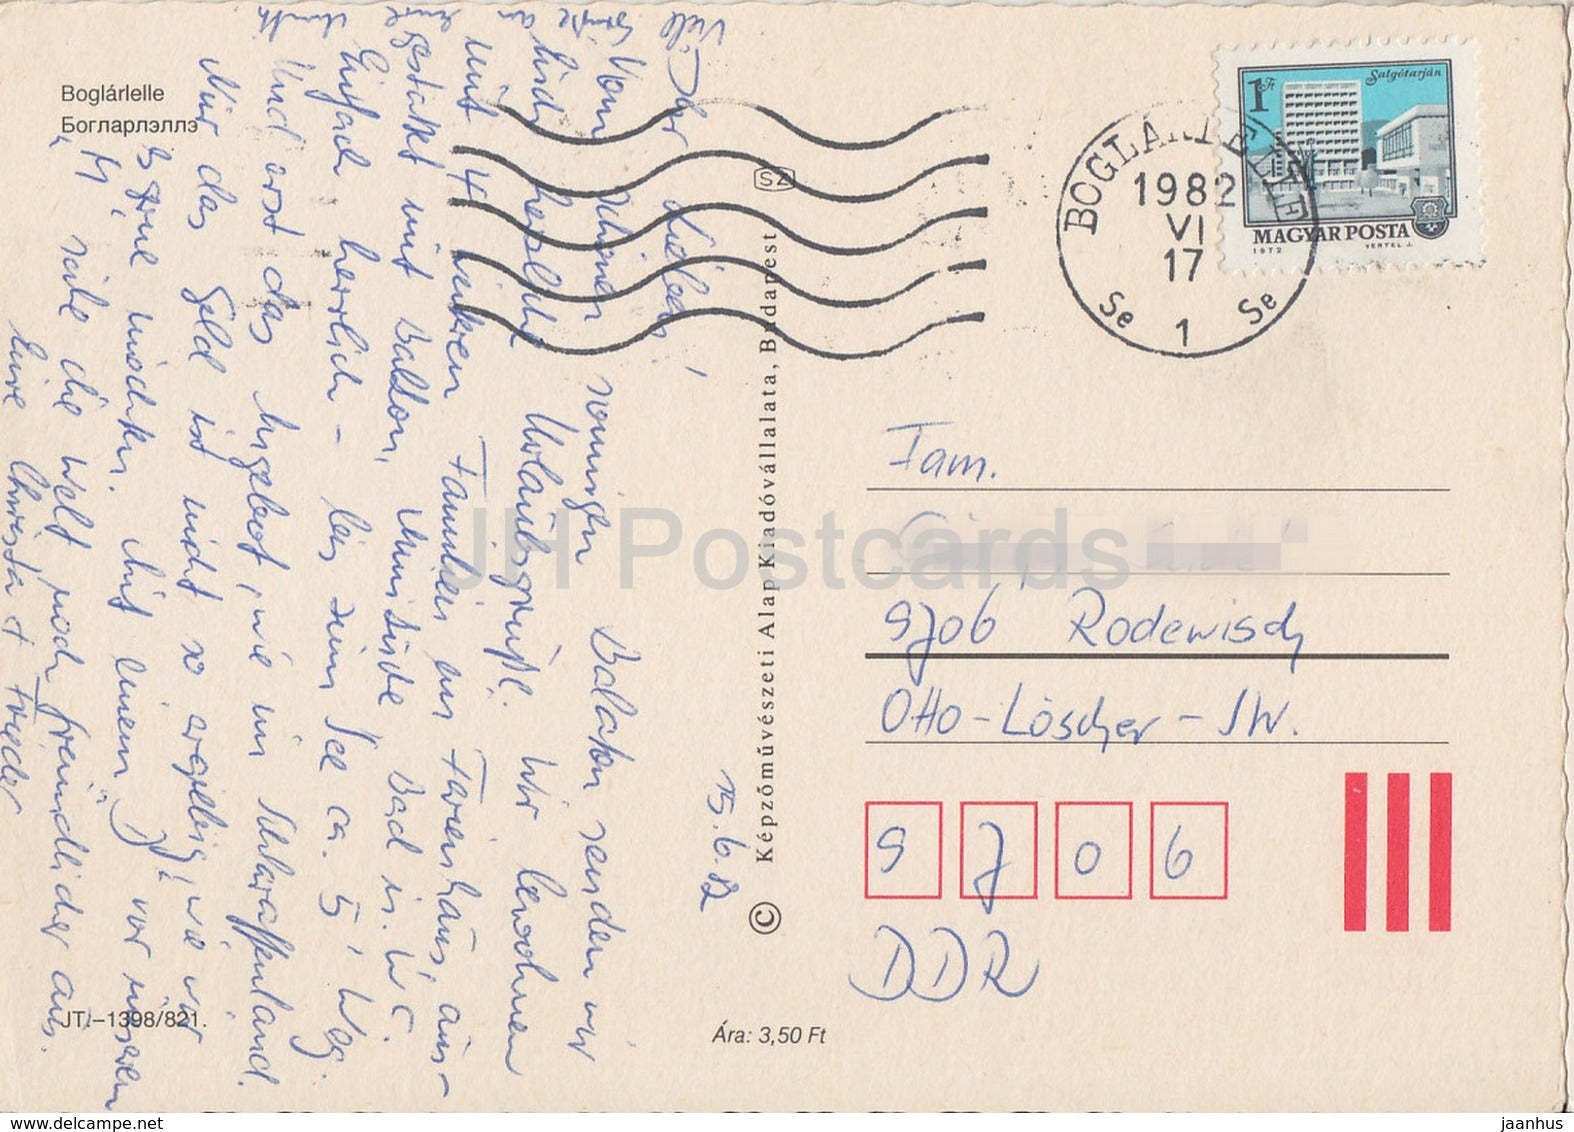 Boglárlelle
Богларлэллэ
15.6.82
Ihr Lieben!
Vom schönen sonnigen Balaton senden wir
herzliche Urlaubsgrüße. Wir bewohnen
mit 4 weiteren Familien ein Ferienhaus, aus-
gestattet mit Balkon, Miniküche Bad u. WC.
Einfach herrlich – bis zum See ca. 5' Weg.
Und erst das Angebot, wie im Schlaraffenland.
Nur das Geld ist nicht so ergiebig, wie wir
es gerne möchten. Mit einem "Ff" vor unserem
"M" sähe die Welt noch freundlicher aus.
Eure Christa + Frieder
Viele
JT.–1398/821.
Ára: 3,50 Ft
© Képzőművészeti Alap Kiadóvállalata, Budapest
SZ
1 Ft
Salgótarján
MAGYAR POSTA
1972
VERTEL J.
BOGLÁRLELLE
1982
VI
17
Se 1 Se
Fam.
9706 Rodewisch
Otto-Löscher-SW.
9706
DDR
JH Postcards
jaanhus